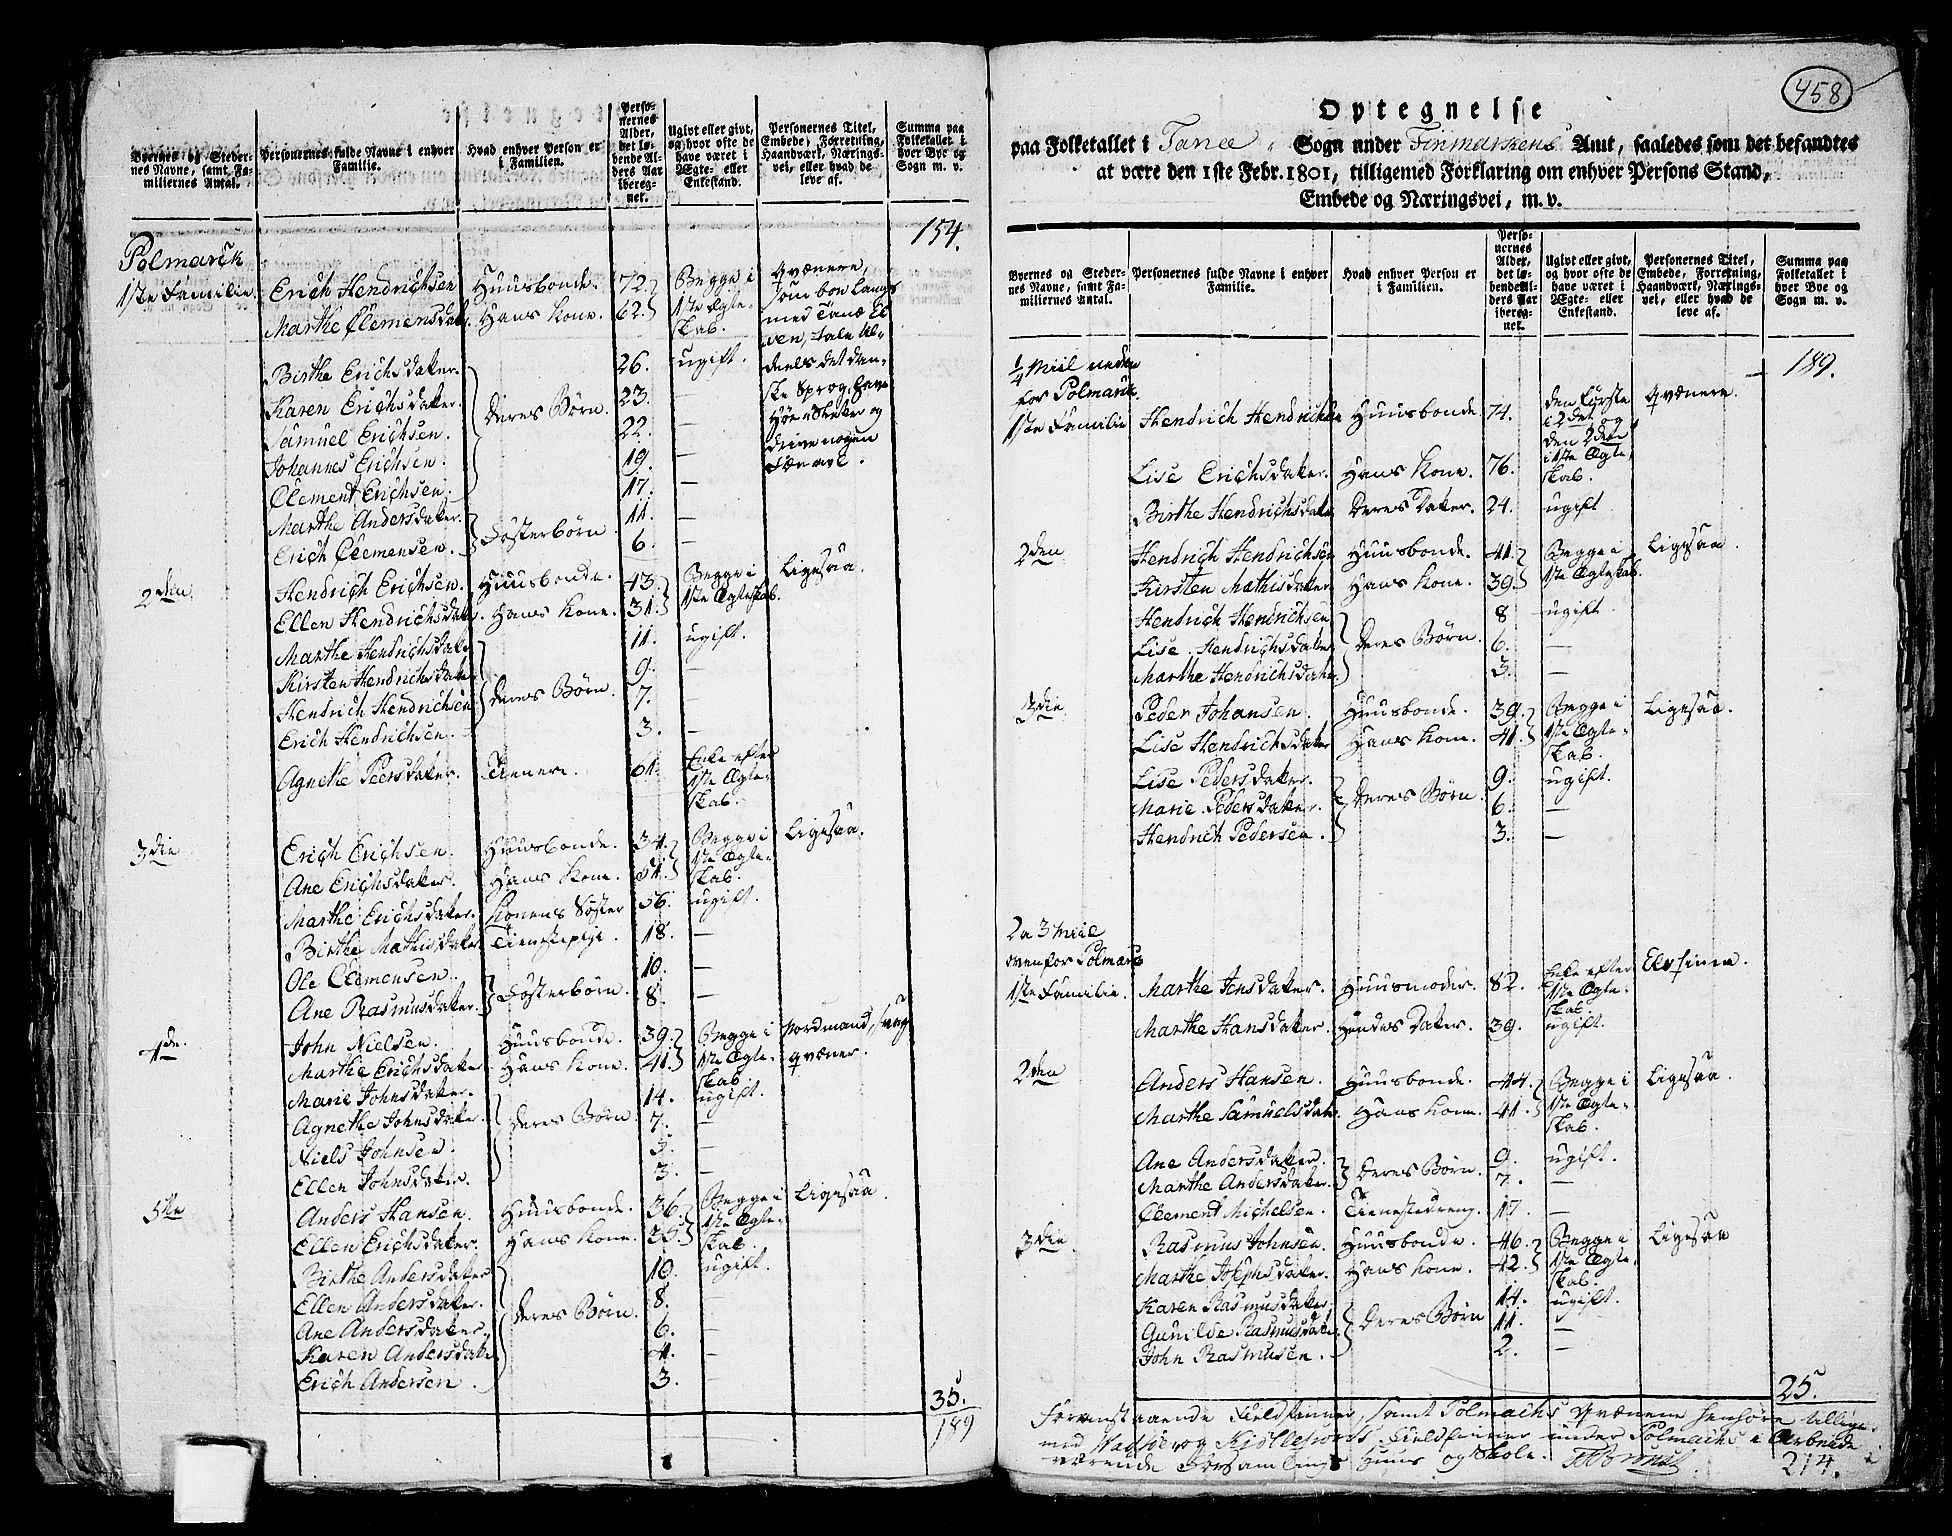 Byernes og Steder-
nes Navne, samt Fa-
miliernes Antal.
Personernes fulde Navne i enhver
Familie.
Hvad enhver Person er
i Familien.
Perso-
nernes
Alder,
det lø-
bende Al-
ders Aar
ibereg-
net.
Ugivt eller givt,
og hvor ofte de
have været i
Ægte- eller
Enkestand.
Personernes Titel,
Embede, Forretning,
Haandværk, Nærings-
vei, eller hvad de
leve af.
Summa paa
Folketallet i
hver Bye og
Sogn m. v.
154.
Polmarck
1ste Familie. Erich Hendrichsen Huusbonde. 72. Begge i 1ste Ægte- skab. Qvæner,
Marthe Clemensdatter Hans Kone. 62. som boe langs
med Tanæ El-
ven, tale al-
deels det dan-
ske Sprog, have
Høe Slætter og
drive nogen
Birthe Erichsdatter. 26. ugift.
Karen Erichsdatter. Deres Børn. 23. —
Samuel Erichsen. 22. —
Johannes Erichsen. 19. —
Clement Erichsen. 17. —
Marthe Andersdatter. Fosterbørn 11. —
Erich Clemensen. 6. —
2den. Hendrich Erichsen. Huusbonde. 43. Begge i 1ste Ægteskab. Ligesaa.
Ellen Hendrichsdatter. Hans Kone. 31.
Marthe Hendrichsdatter 11. ugift.
Kirsten Hendrichsdatter 9. —
Hendrich Hendrichsen Deres Børn. 7. —
Erich Hendrichsen. 3. —
Agnethe Peersdatter. Tienere. 61. Enke efter 1ste Ægte- skab.
3die Erich Erichsen. Huusbonde. 34. Begge i 1ste Ægte- skab. Ligesaa.
Ane Erichsdatter. Hans Kone. 51.
Marthe Erichsdatter. Konens Søster 56. ugift.
Birthe Mathisdatter Tienestepige. 18. —
Ole Clemensen. 10. —
Ane Rasmusdatter. Fosterbørn. 8. —
4de. John Nielsen. Huusbonde. 39. Begge i 1ste Ægte- skab Nordmand,
Marthe Erichsdatter Hans Kone. 41. Qvæner.
Marie Johnsdatter. 14. ugift.
Agnethe Johnsdatter. Deres Børn 7. —
Niels Johnsen. 5. —
Ellen Johnsdatter. 3. —
5te Anders Hansen. Huusbonde. 36. Begge i 1ste Ægte- skab. Ligesaa.
Ellen Erichsdatter. Hans Kone. 36.
Birthe Andersdatter 10. ugift.
Ellen Andersdatter. 8. —
Ane Andersdatter. Deres Børn. 6. —
Karen Andersdatter 4. —
Erich Andersen. 3. —
35.
189
458
Optegnelse
paa Folketallet i Tanee Sogn under Finmarkens Amt, saaledes som det befandtes
at være den 1ste Febr. 1801, tilligemed Forklaring om enhver Persons Stand,
Embede og Næringsvei, m. v.
Byernes og Steder-
nes Navne, samt Fa-
miliernes Antal.
Personernes fulde Navne i enhver
Familie.
Hvad enhver Person er
i Familien.
Perso-
nernes
Alder,
det lø-
bende Al-
ders Aar
ibereg-
net.
Ugivt eller givt,
og hvor ofte de
have været i
Ægte- eller
Enkestand.
Personernes Titel,
Embede, Forretning,
Haandværk, Nærings-
vei, eller hvad de
leve af.
Summa paa
Folketallet i
hver Bye og
Sogn m. v.
189.
1/4 Miil neden
for Polmark.
1ste Familie Hendrich Hendrichsen Huusbonde 74. den første i 2det og den 2den i 1ste Ægte- skab. Qvænere
Lise Erichsdatter. Hans Kone. 76.
Birthe Hendrichsdatter Deres Datter. 24. ugift
2den Hendrich Hendrichsen Huusbonde. 41. Begge i 1ste Ægteskab. Ligesaa.
Kirsten Mathisdatter Hans Kone. 39.
Hendrich Hendrichsen 8 ugift.
Lise Hendrichsdatter Deres Børn. 6. —
Marthe Hendrichsdatter. 3. —
3die. Peder Johansen. Huusbonde. 39. Begge i 1ste Ægte- skab. Ligesaa.
Lise Hendrichsdatter Hans Kone. 41.
Lise Pedersdatter. 9. ugift.
Marie Pedersdatter. Deres Børn 6. —
Hendrich Pedersen. 3. —
2 a 3 Miil
ovenfor Polmark
1ste Familie. Marthe Jensdatter. Huusmoder. 82. Enke efter 1ste Ægte- skab. Elvfinne.
Marthe Hansdatter. Hendes Datter. 39. ugift.
2den Anders Hansen. Huusbonde. 44. Begge i 1ste Ægte- skab. Ligesaa.
Marthe Samuelsdatter. Hans Kone. 41.
Ane Andersdatter. 9. ugift.
Marthe Andersdatter. Deres Børn. 7. —
Clement Michelsen. Tienestedreng. 17. —
3die. Rasmus Johnsen. Huusbonde. 46. Begge i 1ste Ægte- skab. Ligesaa
Marthe Josephsdatter. Hans Kone. 42.
Karen Rasmusdatter 14. ugift.
Gunilde Rasmusdatter Deres Børn 11. —
John Rasmusen. 2. —
25.
Foranstaaende Fieldfinner, samt Polmachs Qvænene henhøre tillige
med Fieldfinner under Polmachs i Arbeide
værende Forsamlings Huus og Skole.
214.